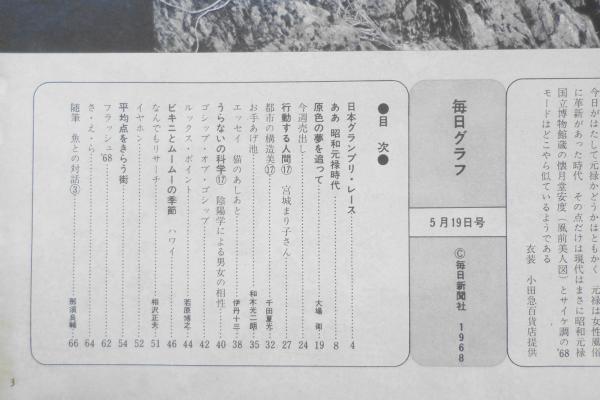 今日がはたして元禄かどうかはともかく 元禄は女性風俗
に革新があった時代 その点だけは現代はまさに昭和元禄
国立博物館蔵の懐月堂安度(風前美人図)とサイケ調の'68
モードはどこやら似ているようである
衣装 小田急百貨店提供
毎日グラフ
5月19日号
©毎日新聞社 1968
●目次●
日本グランプリ・レース 4
ああ 昭和元禄時代 8
原色の夢を追って 大場 19
今週売出し 24
行動する人間⑰ 宮城まり子さん 27
都市の構造美⑰ 千田夏光 32
お手あげ池 和木光二朗 35
エッセイ 猫のあしあと 伊丹十三 38
うらないの科学⑰ 陰陽学による男女の相性 40
ゴシップ・オブ・ゴシップ 42
ルックス・ポイント 若原博之 44
ビキニとムームーの季節 ハワイ 46
なんでもリサーチ 相沢正夫 51
イヤホン 52
平均点をきらう街 54
フラッシュ'68 62
さ・え・ら 64
随筆 魚との対話③ 那須良輔 66
3